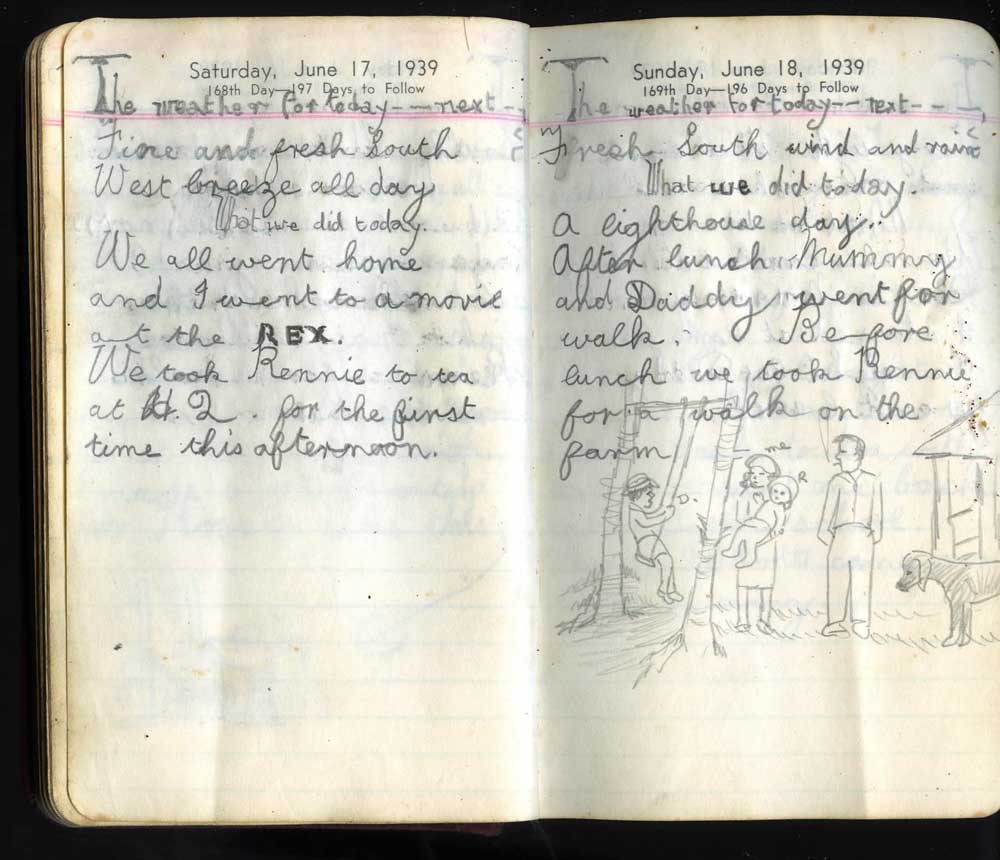 Saturday, June 17, 1939
168th Day—197 Days to Follow
The weather for today---next--
Fine and fresh South
West breeze all day
What we did today.
We all went home
and I went to a movie
at the REX.
We took Rennie to tea
at H.Q. for the first
time this afternoon.
Sunday, June 18, 1939
169th Day—196 Days to Follow
The weather for today--next--
Fresh South wind and rain
What we did today.
A lighthouse day.
After lunch Mummy
and Daddy went for
walk. Before
lunch we took Rennie
for a walk on the
farm
me
R
D.